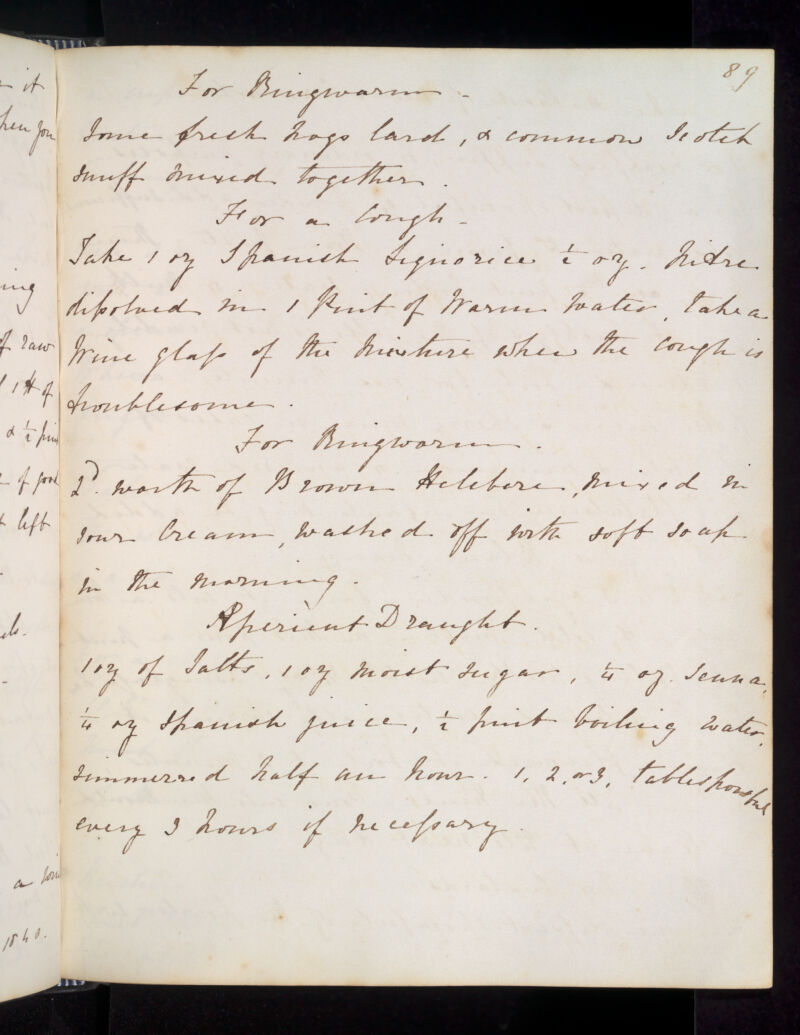 89
For Ringwarm -
some fresh hogs lard, & common Scotch
snuff mixed together.
For a Cough -
Take 1 oz Spanish Liquorice ½ oz. Nitre
dissolved in 1 Pint of Warm Water, take a
Wine glass of the Mixture when the Cough is
troublesome.
For Ringwarm.
2d. worth of Brown Helebore, mixed in
sour Cream, washed off with soft soap
in the morning.
Aperient Draught.
1 oz of Salts, 1 oz moist sugar, ¼ oz. Senna,
¼ oz Spanish juice, ½ pint boiling water,
simmerred half an hour. 1, 2, or 3, tablespoonsful
every 3 hours if necessary.
it
of raw
1 ℔ of
& ½ pin
of
left
a
1840.